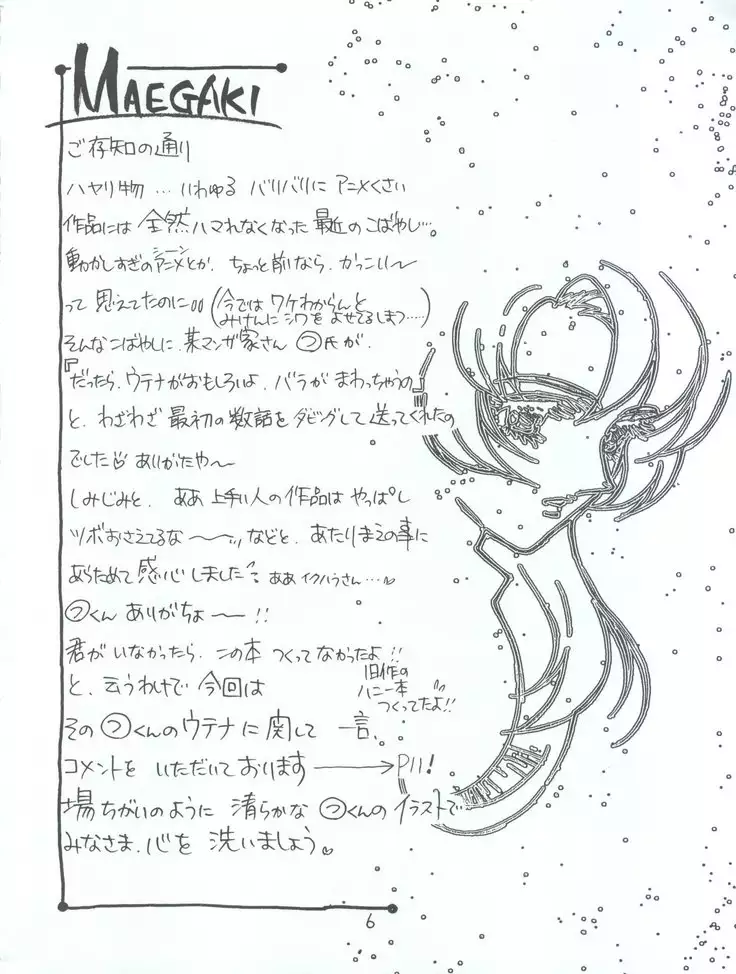 MAEGAKI
ご存知の通り
ハヤリ物…いわゆる バリバリに アニメくさい
作品には 全然ハマれなくなった 最近の こばやし…。
動かしすぎのアニメとか、ちょっと前なら、かっこいい〜
シーン
って 思えてたのに(今では ワケわからんと
みけんに シワを よせてるしまつ……)
そんなこばやしに、某マンガ家さん つ氏が、
『だったら、ウテナがおもしろいよ、バラが まわっちゃうの
と、わざわざ 最初の数話を ダビングして送ってくれたの
でした ありがたや〜
しみじみと、ああ 上手い人の作品は やっぱし
ツボおさえてるな〜〜ッ などと、あたりまえの事に
あらためて 感心しました ああ イクハラさん…♡
つくん ありがちょ〜!!
君が いなかったら、この本 つくってなかったよ!!
旧作の
ハニー本
つくってたよ!!
と、云うわけで 今回は
その つくんのウテナに関して 一言、
コメントを いただいております→P11!
場ちがいのように 清らかな つくんの イラストで
みなさま、心を 洗いましょう。
6